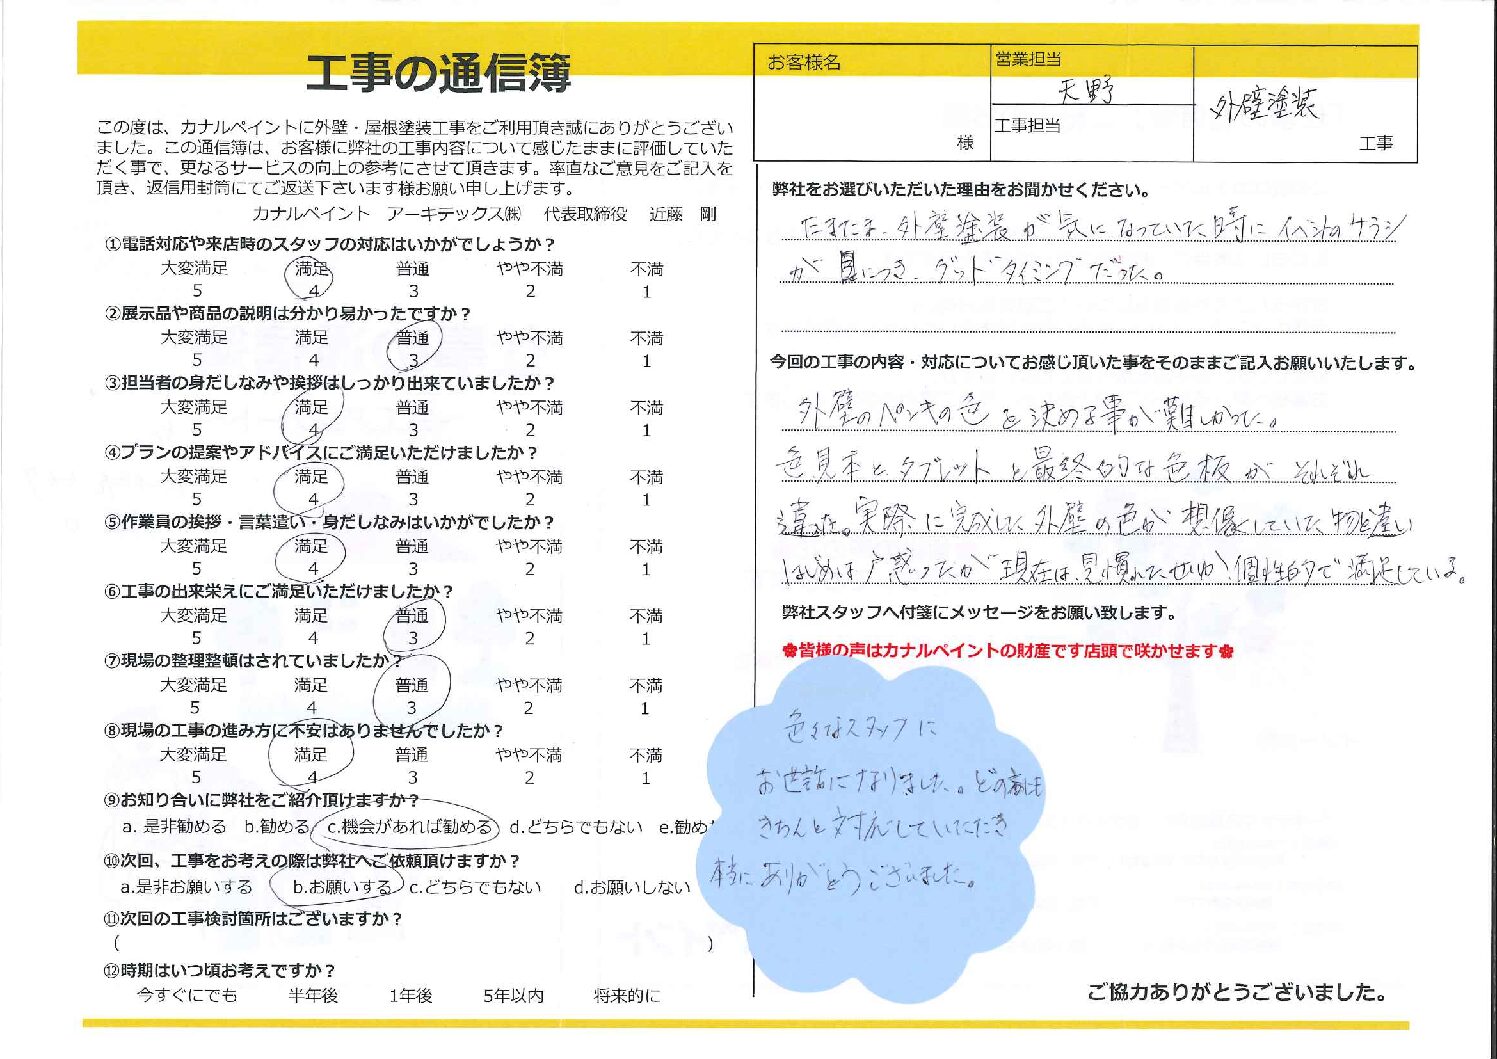 工事の通信簿
この度は、カナルペイントに外壁・屋根塗装工事をご利用頂き誠にありがとうござい
ました。この通信簿は、お客様に弊社の工事内容について感じたままに評価していた
だく事で、更なるサービスの向上の参考にさせて頂きます。率直なご意見をご記入を
頂き、返信用封筒にてご返送下さいます様お願い申し上げます。
カナルペイント アーキテックス㈱ 代表取締役 近藤 剛
①電話対応や来店時のスタッフの対応はいかがでしょうか？
大変満足 満足 普通 やや不満 不満
5 4 3 2 1
②展示品や商品の説明は分かり易かったですか？
大変満足 満足 普通 やや不満 不満
5 4 3 2 1
③担当者の身だしなみや挨拶はしっかり出来ていましたか？
大変満足 満足 普通 やや不満 不満
5 4 3 2 1
④プランの提案やアドバイスにご満足いただけましたか？
大変満足 満足 普通 やや不満 不満
5 4 3 2 1
⑤作業員の挨拶・言葉遣い・身だしなみはいかがでしたか？
大変満足 満足 普通 やや不満 不満
5 4 3 2 1
⑥工事の出来栄えにご満足いただけましたか？
大変満足 満足 普通 やや不満 不満
5 4 3 2 1
⑦現場の整理整頓はされていましたか？
大変満足 満足 普通 やや不満 不満
5 4 3 2 1
⑧現場の工事の進み方に不安はありませんでしたか？
大変満足 満足 普通 やや不満 不満
5 4 3 2 1
⑨お知り合いに弊社をご紹介頂けますか？
a. 是非勧める b.勧める c.機会があれば勧める d.どちらでもない e.勧め
⑩次回、工事をお考えの際は弊社へご依頼頂けますか？
a.是非お願いする b.お願いする c.どちらでもない d.お願いしない
⑪次回の工事検討箇所はございますか？
( )
⑫時期はいつ頃お考えですか？
今すぐにでも 半年後 1年後 5年以内 将来的に
お客様名
様
営業担当
天野
工事担当
外壁塗装
工事
弊社をお選びいただいた理由をお聞かせください。
たまたま、外壁塗装が気になっていた時にイベントのチラシ
が目につき、グッドタイミングだった。
今回の工事の内容・対応についてお感じ頂いた事をそのままご記入お願いいたします。
外壁のペンキの色を決める事が難しかった。
色見本とタブレットと最終的な色板がそれぞれ
違った。実際に完成した外壁の色が想像していた物と違い
はじめは戸惑ったが現在は、見慣れたせいか、個性的で満足している。
弊社スタッフへ付箋にメッセージをお願い致します。
✿皆様の声はカナルペイントの財産です店頭で咲かせます✿
色々なスタッフに
お世話になりました。どの方も
きちんと対応していただき
本当にありがとうございました。
ご協力ありがとうございました。